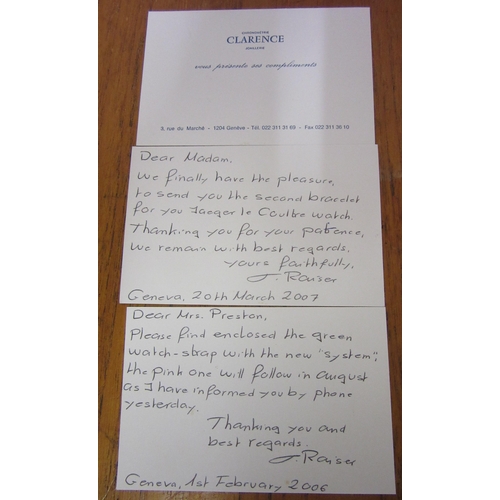 CHRONOMÉTRIE
CLARENCE
JOAILLERIE
vous présente ses compliments
3, rue du Marché - 1204 Genève - Tél. 022 311 31 69 - Fax 022 311 36 10
Dear Madam,
We finally have the pleasure,
to send you the second bracelet
for you Jaeger le Coultre watch.
Thanking you for your patience,
We remain with best regards.
yours faithfully,
J. Raiser
Geneva, 20th March 2007
Dear Mrs. Preston,
Please find enclosed the green
watch-strap with the new "system";
the pink one will follow in august
as I have informed you by phone
yesterday.
Thanking you and
best regards.
J. Raiser
Geneva, 1st February 2006